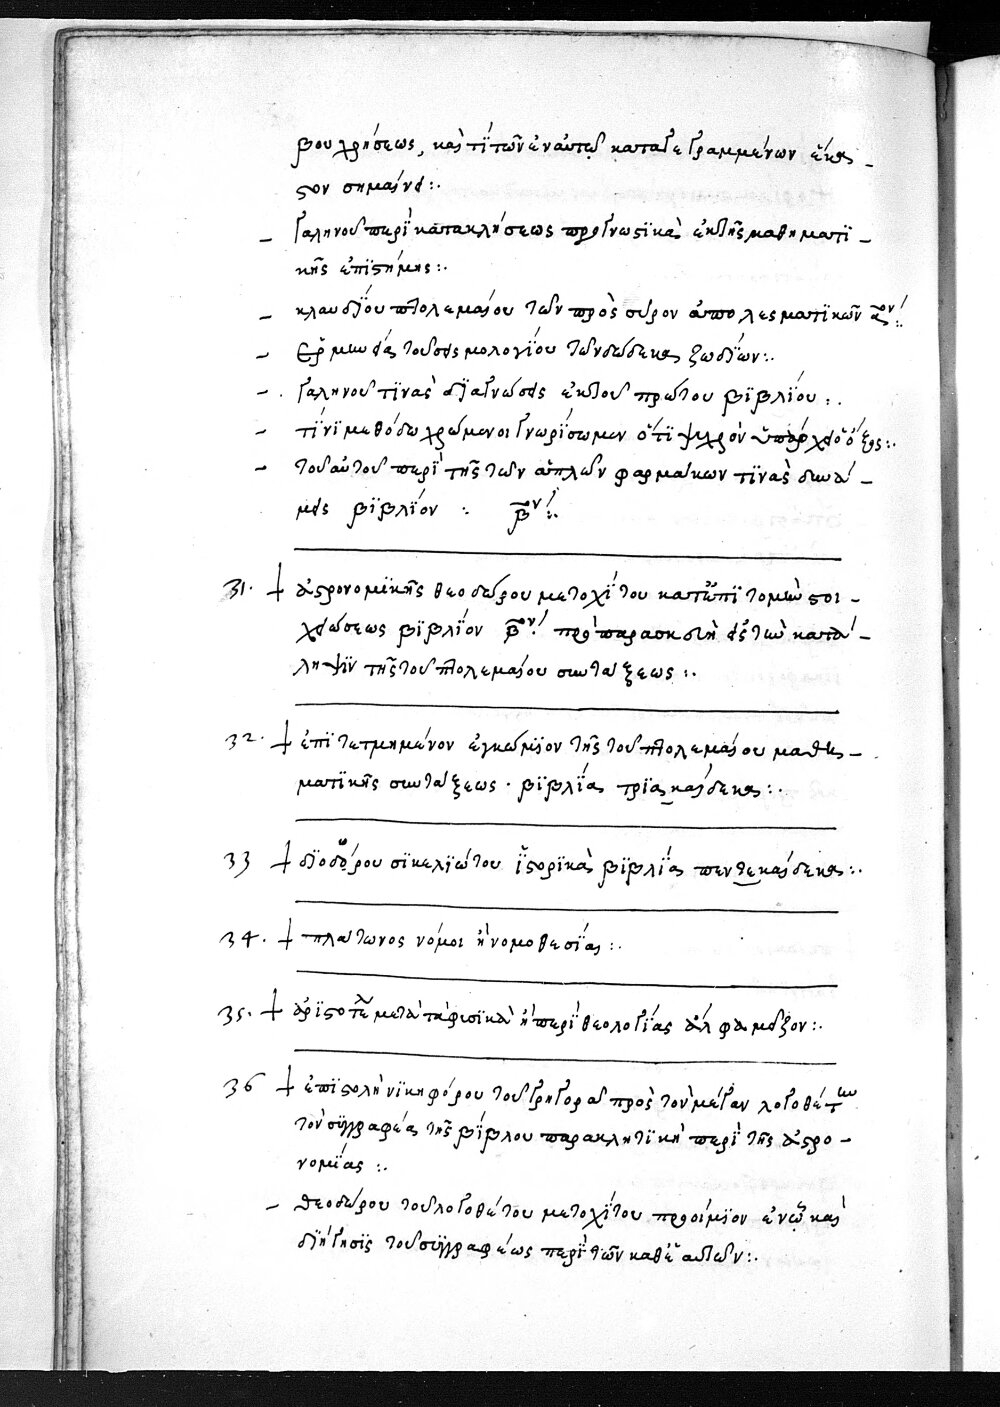 βου χρήσεως, καὶ τί τῶν ἐν αὐτῷ καταγεγραμμένων ἕκα –
στον σημαίνει :.
– γαληνοῦ περὶ κατακλήσεως προγνωστϊκὰ ἐκ τῆς μαθηματϊ –
κῆς ἐπϊστήμης :.
– κλαυδΐου πτολεμαίου τῶν πρὸς σύρον ἀποτελεσματϊκῶν α̅ον :.
– τοῦ σεισμολογίου τῶν δώδεκα ζωδΐων :.
– γαληνοῦ τϊνὰς δϊαγνώσεις ἐκ τοῦ πρώτου βϊβλΐου :.
– τίνϊ μεθόδω χρώμενοι γνωρίσωμεν ὅτϊ ψυχρὸν ὑπάρχει ὁ ὄξος :.
– τοῦ αὐτοῦ περὶ τῆς τῶν ἁπλῶν φαρμάκων τϊνὰς δυνά –
μεις βϊβλΐον : β̅ον :.
31. † ἀστρονομϊκῆς θεοδώρου μετοχΐτου κατ' ἐπϊτομὴν στοι –
χειώσεως βϊβλΐον β̅ον : προπαρασκευὴ εἰς τὴν κατά –
ληψϊν τῆς τοῦ πτολεμαίου συντάξεως :.
32. † ἐπϊτετμημένον ἐγκώμϊον τῆς τοῦ πτολεμαίου μαθη –
ματϊκῆς συντάξεως . βϊβλΐα τρϊακαίδεκα :.
33 † δϊοδώρου σϊκελϊώτου ἱστορϊκὰ βϊβλΐα πεντεκαίδεκα :.
34. † πλάτωνος νόμοι ἢ νομοθεσΐαι :.
35. † ἀρϊστοτέλ μετὰ τὰ φυσϊκὰ ἢ περὶ θεολογΐας ἄλφα μεῖζον :.
36 † ἐπϊστολὴ νϊκηφόρου τοῦ γρηγορᾶ πρὸς τὸν μέγαν λογοθέτην
τὸν συγγραφέα τῆς βίβλου παρακλητϊκὴ περὶ τῆς ἀστρο –
νομΐας :.
– θεοδώρου τοῦ λογοθέτου μετοχΐτου προοίμϊον ἐν ᾧ καὶ
δϊήγησϊς τοῦ συγγραφέως περὶ τῶν καθ' ἑαυτὸν :.